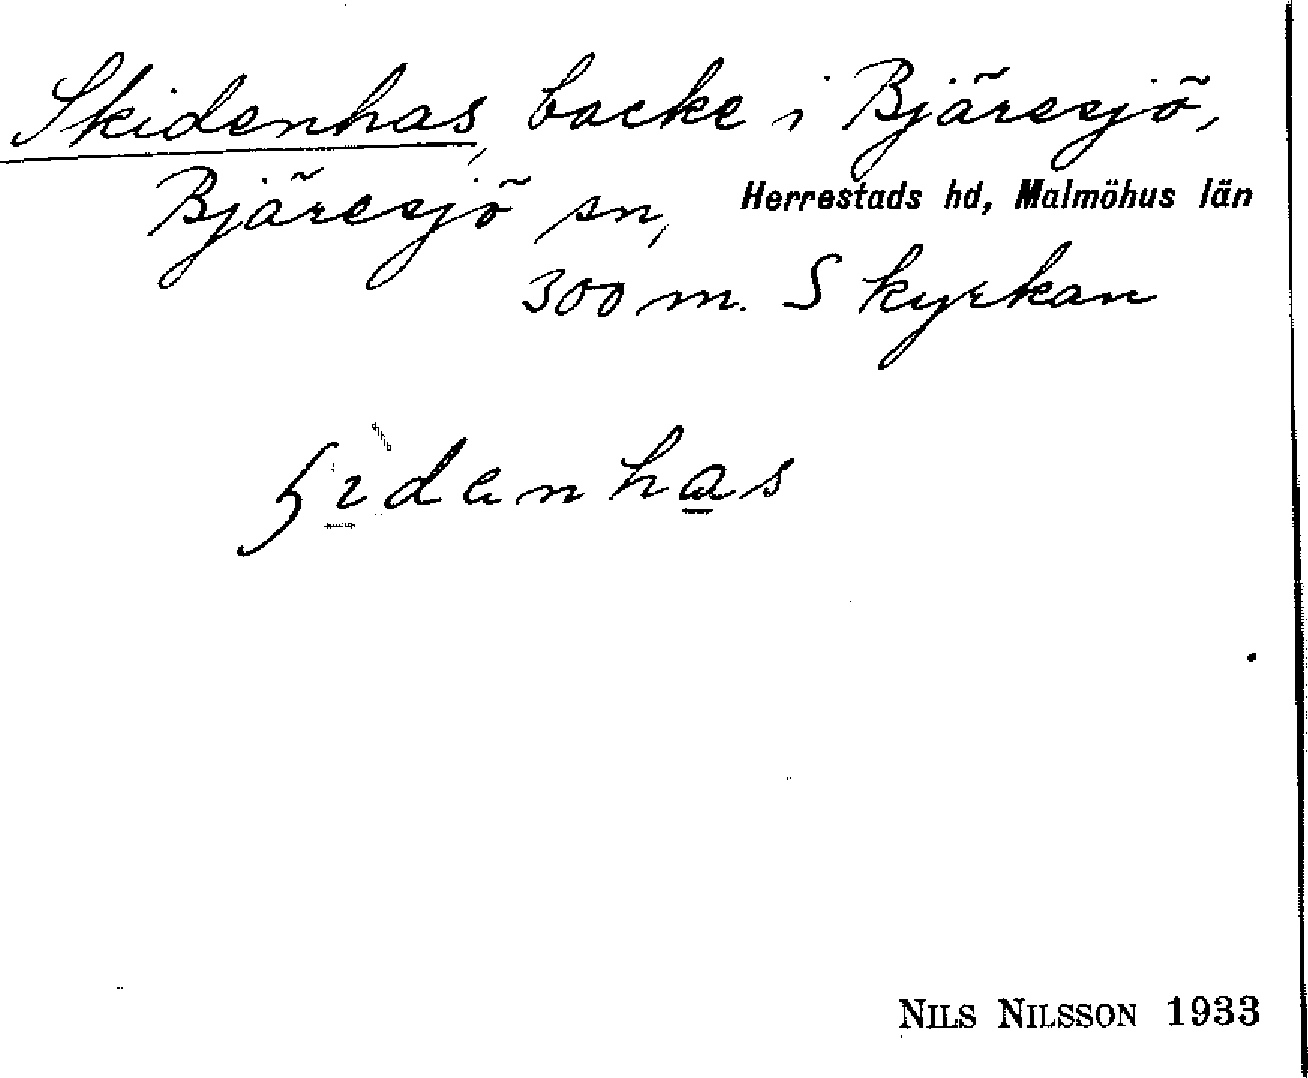 Skidenhas, backe i Bjäresjö,
Bjäresjö sn, Herrestads hd, Malmöhus län
300 m. S kyrkan
NILS NILSSON 1933